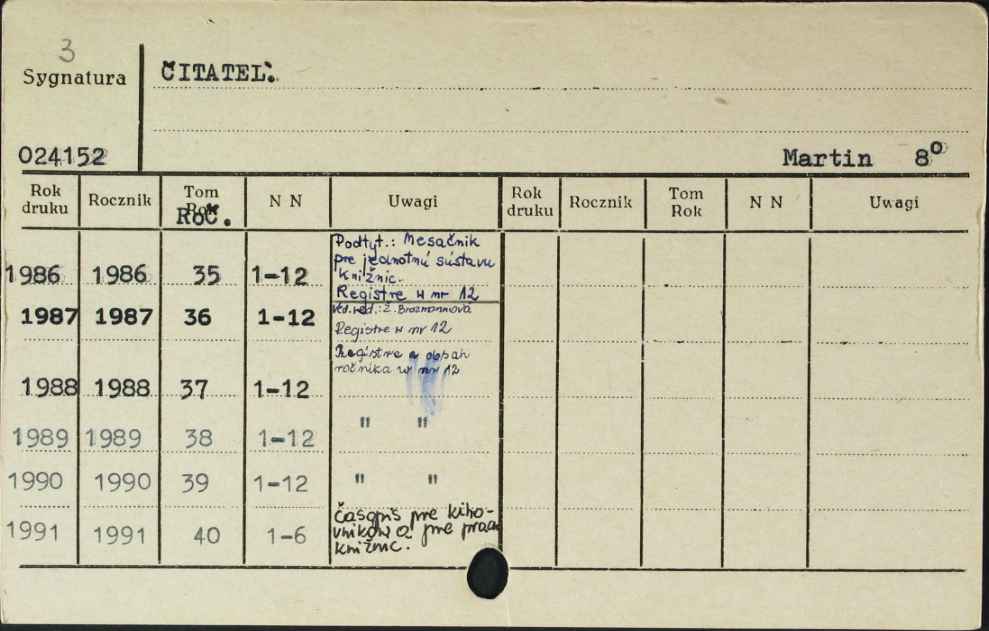 3
Sygnatura
ČITATEĽ.
024152
Martin 8°
Rok druku Rocznik Tom Rok Roč. N N Uwagi Rok druku Rocznik Tom Rok N N Uwagi
Podtyt.: Mesačnik
pre jednotnú sústavu
knižnic.
1986 1986 35 1-12
Registre w nr 12
Ved. red.: Ž. Brozmannová
1987 1987 36 1-12
Registre w nr 12
Registre a obsah
ročnika w nr 12
1988 1988 37 1-12
1989 1989 38 1-12 " "
1990 1990 39 1-12 " "
časopis pre kiho-
1991 1991 40 1-6
vnikow a pre
knižnic.